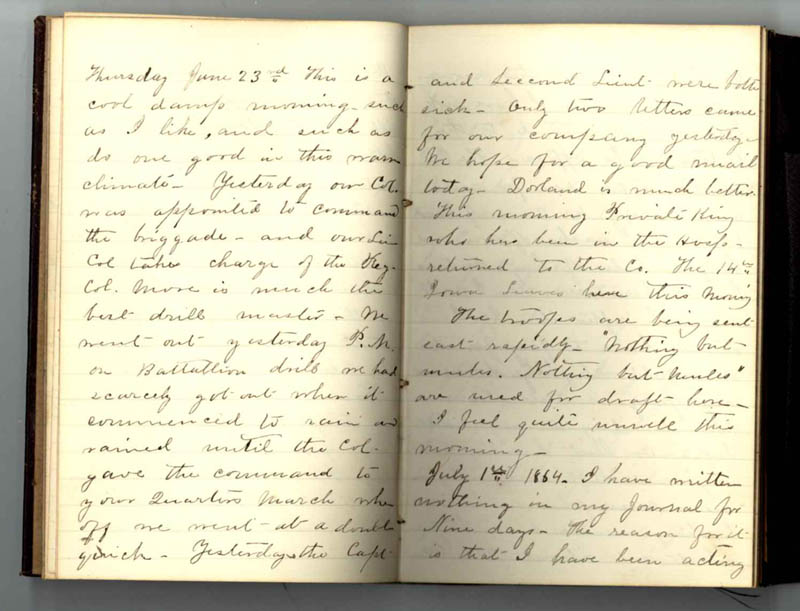 Thursday June 23rd This is a
cool damp morning - such
as I like, and such as
do one good in this warm
climate - Yesterday our Col.
was appointed to command
the briggade - and our Lieu
Col takes charge of the Reg.
Col. More is much the
best drill master - We
went out yesterday P.M.
on Battallion drill we had
scarcely got out when it
commenced to rain and
rained until the Col.
gave the command to
your Quarters March when
off we went at a double
quick - Yesterday the Capt
and Seccond Lieut were both
sick - Only two letters came
for our company yesterday -
We hope for a good mail
today - Dorland is much better.
This morning Private King
who hes been in the Hosp -
returned to the Co. The 14th
Iowa Leaves here this Morning
The troops are being sent
east rapidly - "Nothing but
mules. Nothing but Mules"
are used for draft here -
I feel quite unwell this
morning -
July 1st 1864 - I have written
nothing in my Journal for
Nine days - The reason for it
is that I have been acting